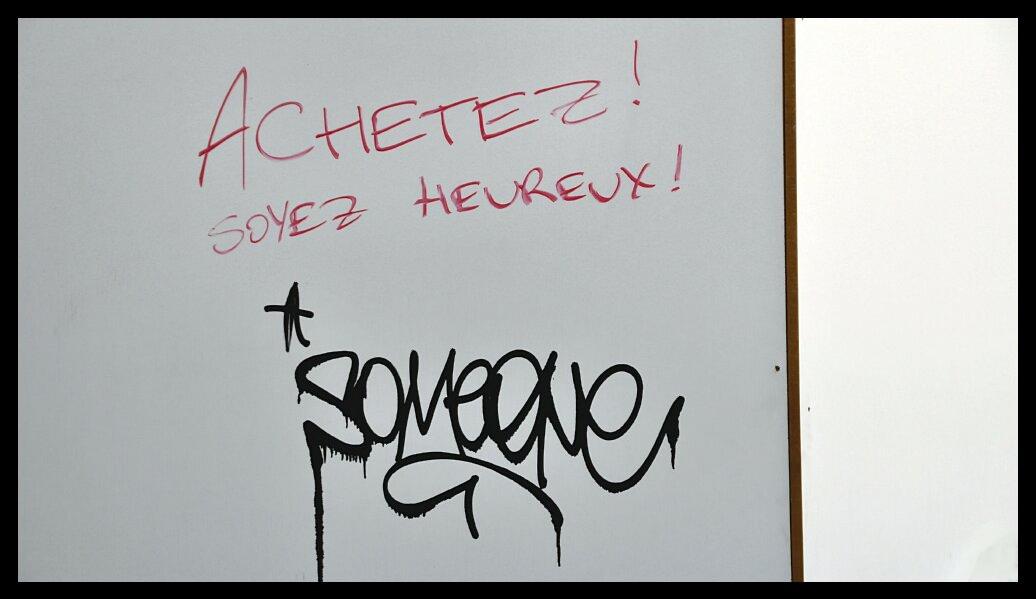 ACHETEZ!
SOYEZ HEUREUX!
SOMEONE